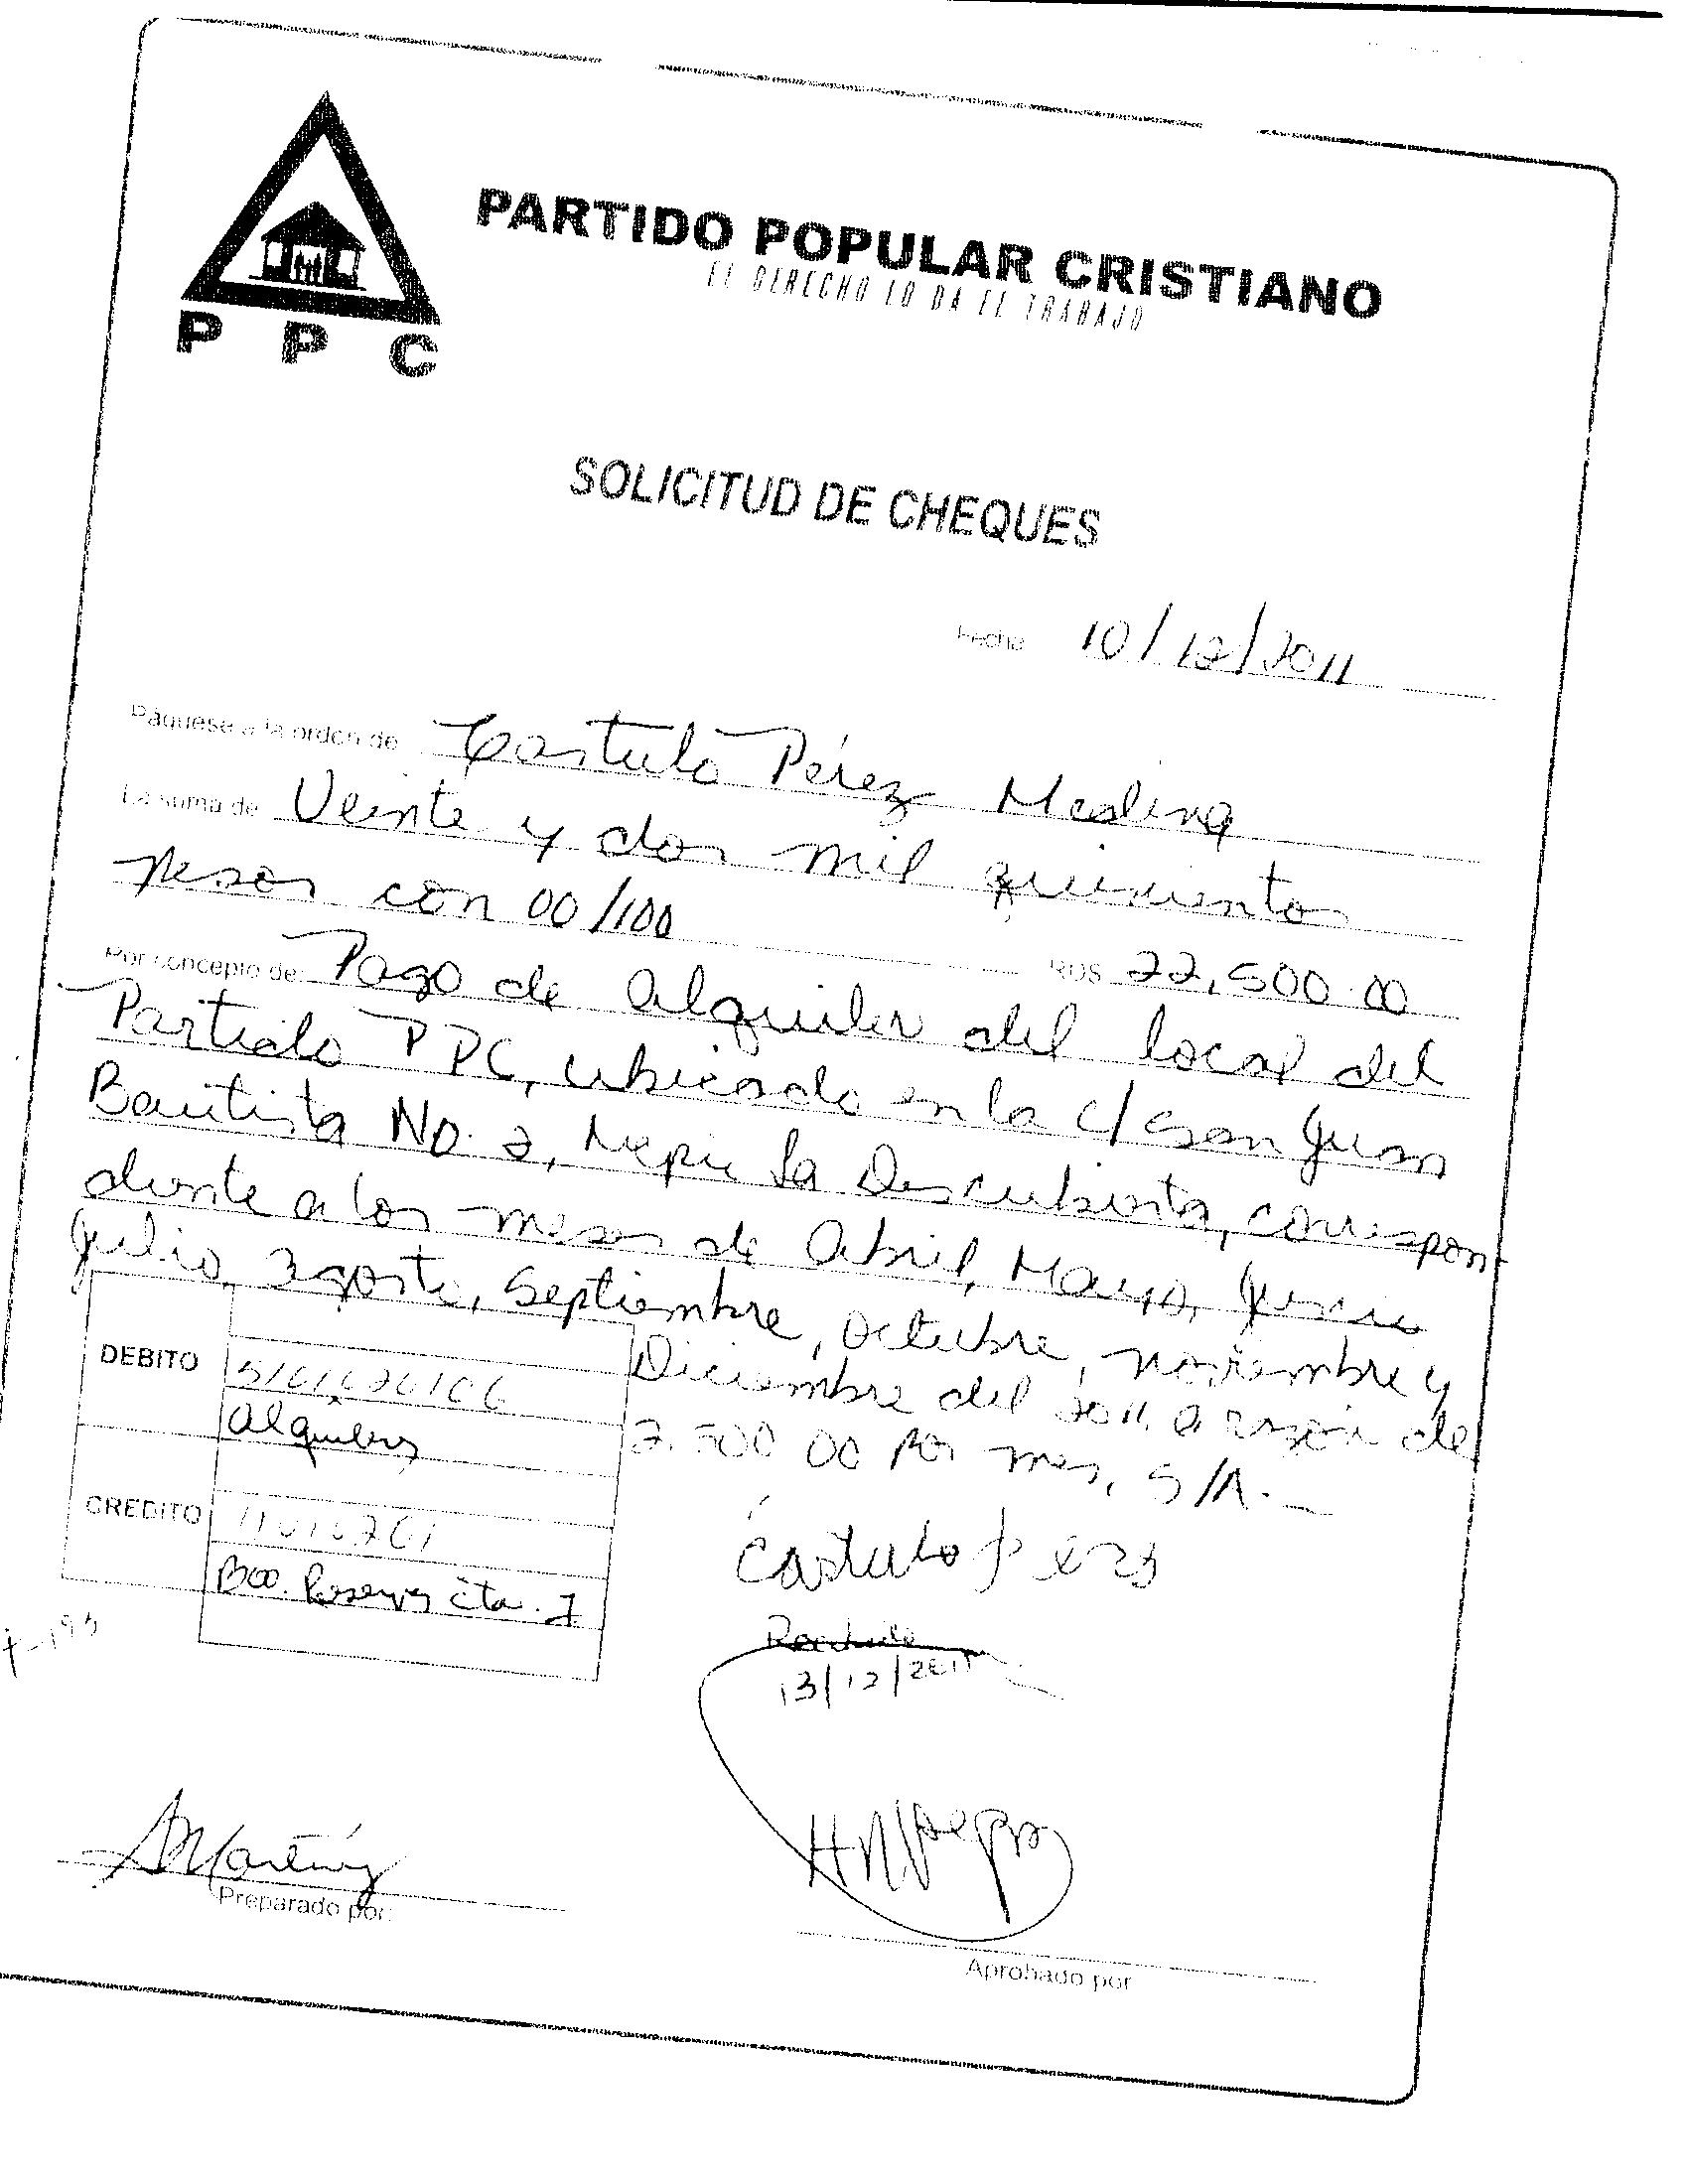 PARTIDO POPULAR CRISTIANO
EL DERECHO LO DA EL TRABAJO
P P C
SOLICITUD DE CHEQUES
Fecha 10/12/2011
Páguese a la orden de Castulo Pérez Medina
La suma de Veinte y dos mil quinientos
pesos con 00/100
RD$ 22,500.00
Por concepto de: Pago de alquiler del local del
Partido PPC, ubicado en la c/ San Juan
Bautista No. 2, La Descubierta, correspon-
diente a los meses de Abril, Mayo, Junio
Julio, agosto, Septiembre, Octubre, noviembre y
Diciembre del 2011, a razón de
2,500 00 por mes, S/A.
DEBITO
alquileres
CREDITO
Bco. Reservas cta. 1
Castulo Perez
13/12/2011
Martínez
Preparado por:
Aprobado por